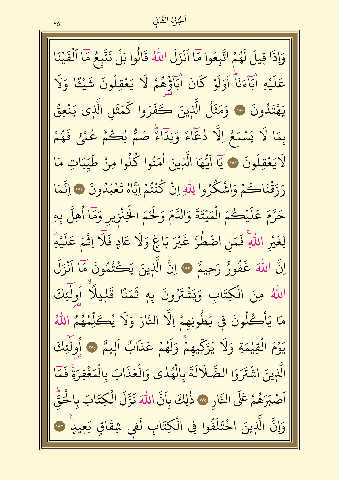 اَلْجُزْءُ الثَّانِي
٢٥
وَاِذَا قِيلَ لَهُمُ اتَّبِعُوا مَٓا اَنْزَلَ اللهُ قَالُوا بَلْ نَتَّبِعُ مَٓا اَلْفَيْنَا
عَلَيْهِ اٰبَٓاءَنَا اَوَلَوْ كَانَ اٰبَٓاؤُهُمْ لَا يَعْقِلُونَ شَيْئًا وَلَا
يَهْتَدُونَ ۝ وَمَثَلُ الَّذِينَ كَفَرُوا كَمَثَلِ الَّذِي يَنْعِقُ
بِمَا لَا يَسْمَعُ اِلَّا دُعَٓاءً وَنِدَٓاءً صُمٌّ بُكْمٌ عُمْيٌ فَهُمْ
لَا يَعْقِلُونَ ۝ يَٓا اَيُّهَا الَّذِينَ اٰمَنُوا كُلُوا مِنْ طَيِّبَاتِ مَا
رَزَقْنَاكُمْ وَاشْكُرُوا لِلّٰهِ اِنْ كُنْتُمْ اِيَّاهُ تَعْبُدُونَ ۝ اِنَّمَا
حَرَّمَ عَلَيْكُمُ الْمَيْتَةَ وَالدَّمَ وَلَحْمَ الْخِنْزِيرِ وَمَٓا اُهِلَّ بِهِ
لِغَيْرِ اللهِ فَمَنِ اضْطُرَّ غَيْرَ بَاغٍ وَلَا عَادٍ فَلَٓا اِثْمَ عَلَيْهِ
اِنَّ اللهَ غَفُورٌ رَحِيمٌ ۝ اِنَّ الَّذِينَ يَكْتُمُونَ مَٓا اَنْزَلَ
اللهُ مِنَ الْكِتَابِ وَيَشْتَرُونَ بِهِ ثَمَنًا قَلِيلًا اُولٰٓئِكَ
مَا يَأْكُلُونَ فِي بُطُونِهِمْ اِلَّا النَّارَ وَلَا يُكَلِّمُهُمُ اللهُ
يَوْمَ الْقِيٰمَةِ وَلَا يُزَكِّيهِمْ وَلَهُمْ عَذَابٌ اَلِيمٌ ۝ اُولٰٓئِكَ
الَّذِينَ اشْتَرَوُا الضَّلَالَةَ بِالْهُدٰى وَالْعَذَابَ بِالْمَغْفِرَةِ فَمَٓا
اَصْبَرَهُمْ عَلَى النَّارِ ۝ ذٰلِكَ بِاَنَّ اللهَ نَزَّلَ الْكِتَابَ بِالْحَقِّ
وَاِنَّ الَّذِينَ اخْتَلَفُوا فِي الْكِتَابِ لَفِي شِقَاقٍ بَعِيدٍ ۝